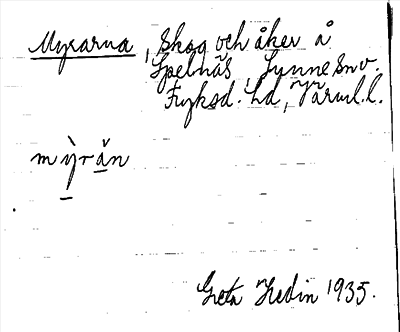 Myrarna, Skog och åker å
Spelnäs, Sunne snv.
Fryksd. hd, Värml. l.
mỳrän
Greta Hedin 1935.